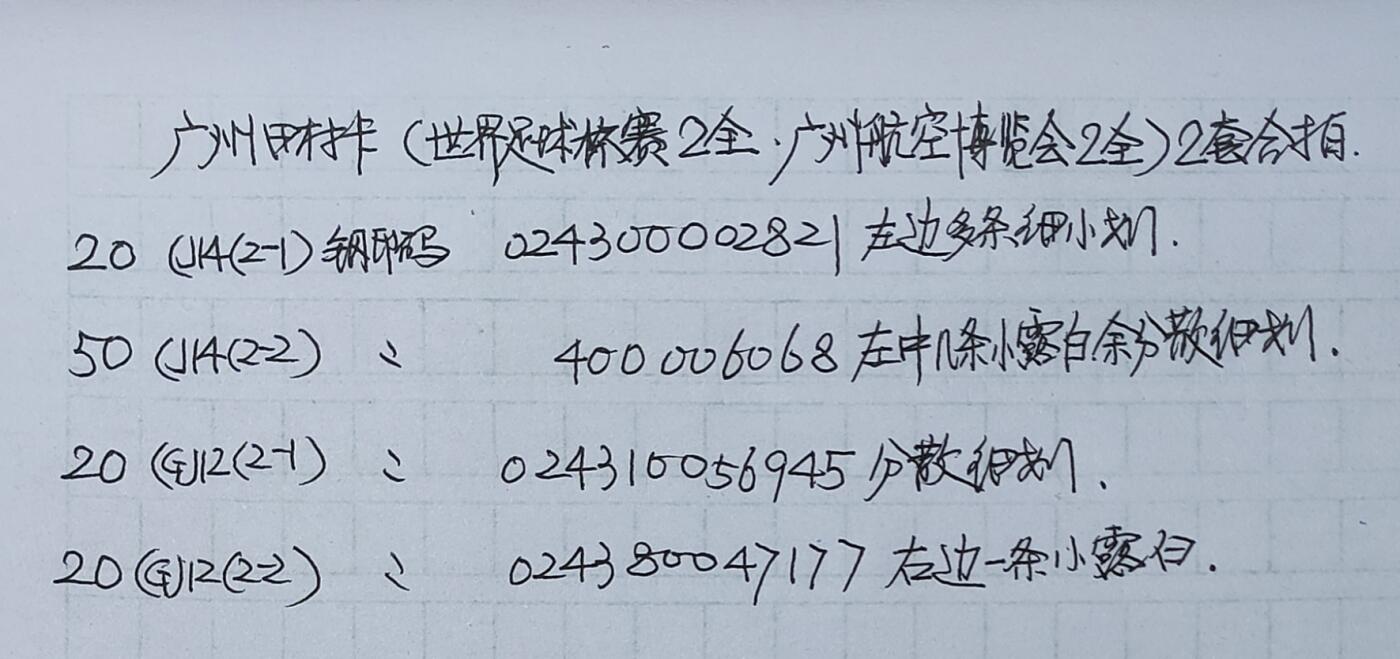 广州田村卡(世界足球杯赛2全.广州航空博览会2全)2套合拍.
20 (J14(2-1)钢印码 024300002821左边多条细小划.
50 (J14(2-2) 〃 400006068左中几条小露白余分散细划.
20 (GJ12(2-1) 〃 024310056945分散细划.
20(GJ12(2-2) 〃 024380047177右边一条小露白.